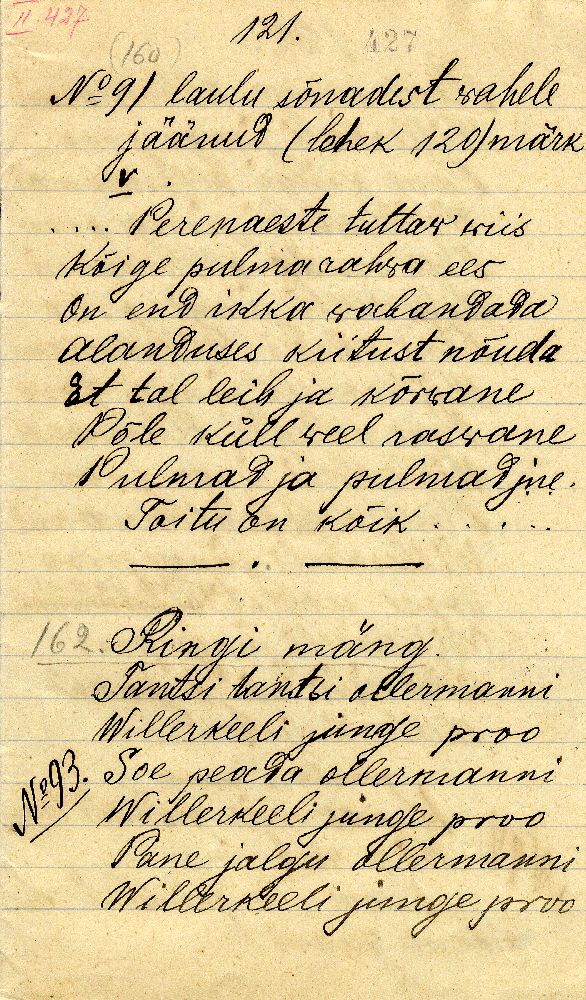 II 427
121.
427
(160)
No 91 laulu sõnadest wahele
jäänud (lehek 120) märk
v .
.... Perenaeste tuttaw wiis
Kõige pulmarahwa ees
On end ikka wabandada
Alanduses kiitust nõuda
Et tal leib ja kõrwane
Põle küll weel raswane
Pulmad ja pulmad jne.
Toitu on kõik . . . . .
162. Ringi mäng.
Tantsi tantsi ollermanni
Willerkeeli junge proo
No 93. Soe peada ollermanni
Willerkeeli junge proo
Pane jalgu ollermanni
Willerkeeli junge proo